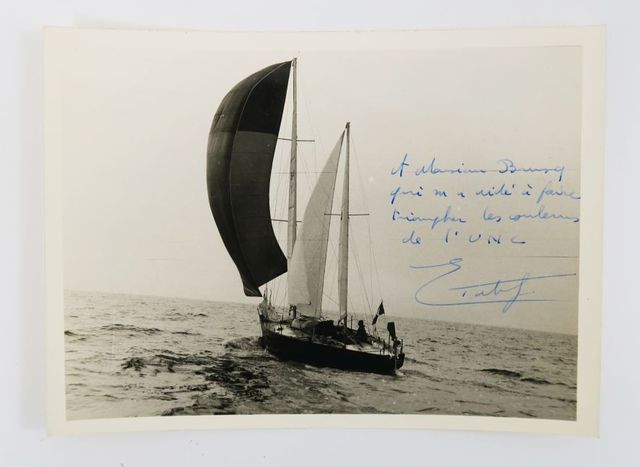 A Monsieur Bourcq
qui m'a aidé à faire
triompher les couleurs
de l'UNC
E Tabarly